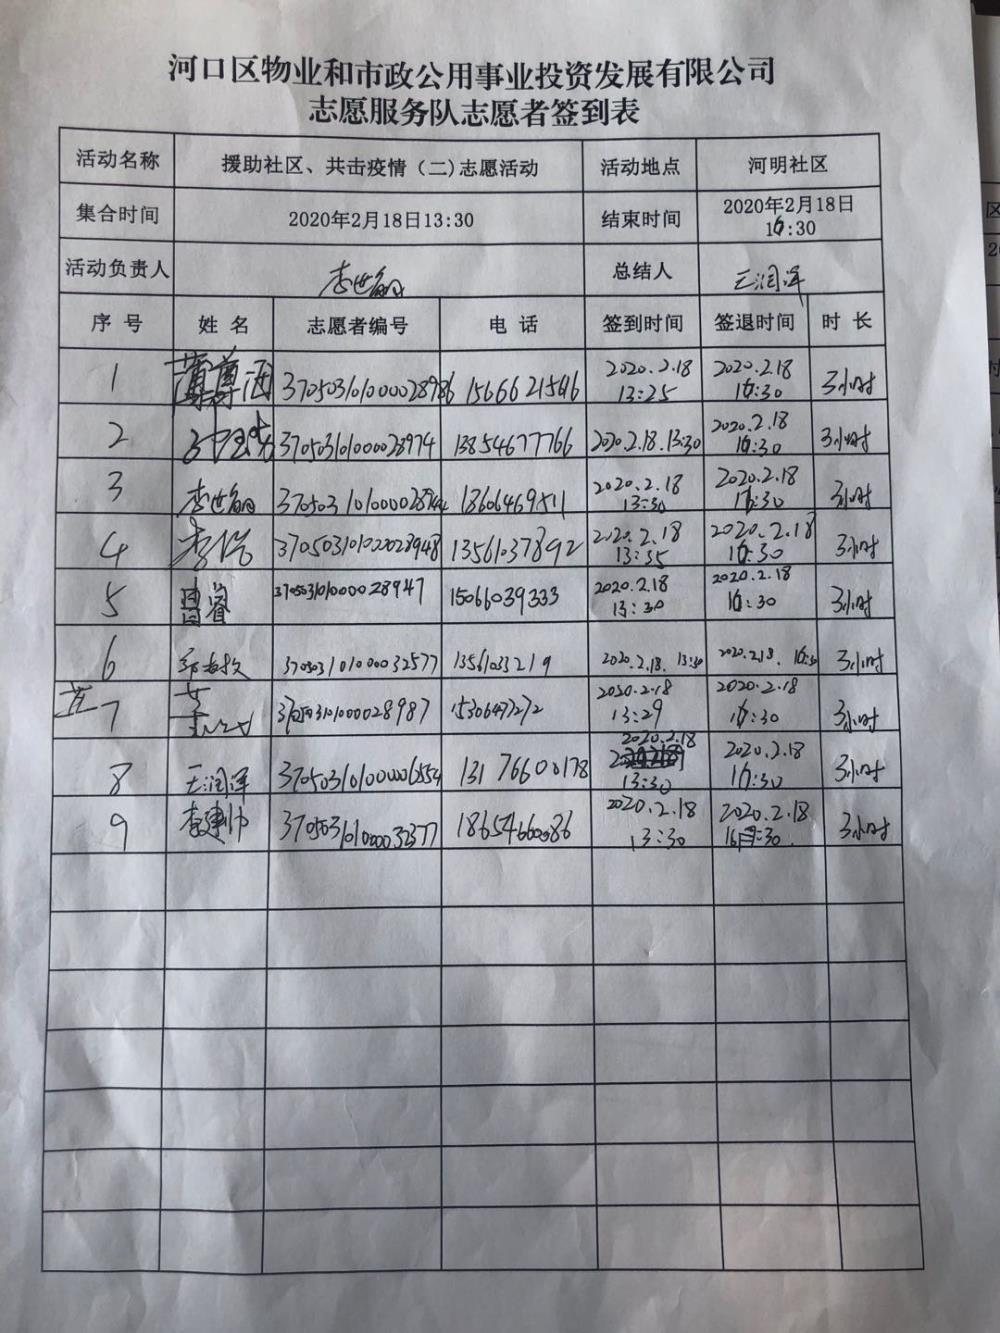 河口区物业和市政公用事业投资发展有限公司
志愿服务队志愿者签到表
活动名称 援助社区、共击疫情（二）志愿活动 活动地点 河明社区
集合时间 2020年2月18日13:30 结束时间 2020年2月18日
16:30
活动负责人 李世 总结人 王润泽
序号 姓名 志愿者编号 电话 签到时间 签退时间 时长
1 薄尊涵 370503101000028986 15666621546 2020.2.18 13:25 2020.2.18 16:30 3小时
2 37050310100028974 13854677766 2020.2.18.13:30 2020.2.18 16:30 3小时
3 李世 2020.2.18 13:30 2020.2.18 16:30 3小时
4 李 13561037892 2020.2.18 13:35 2020.2.18 16:30 3小时
5 睿 370503101000028947 15066039333 2020.2.18 13:30 2020.2.18 16:30 3小时
6 370503101000032577 1356103219 2020.2.18. 13:30 2020.2.18. 16:30 3小时
7 370503101000028987 15306497272 2020.2.18 13:29 2020.2.18 16:30 3小时
8 王润泽 13176600178 2020.2.18 13:30 2020.2.18 16:30 3小时
9 李建帅 370503101000032377 18654660086 2020.2.18 13:30 2020.2.18 16:30 3小时